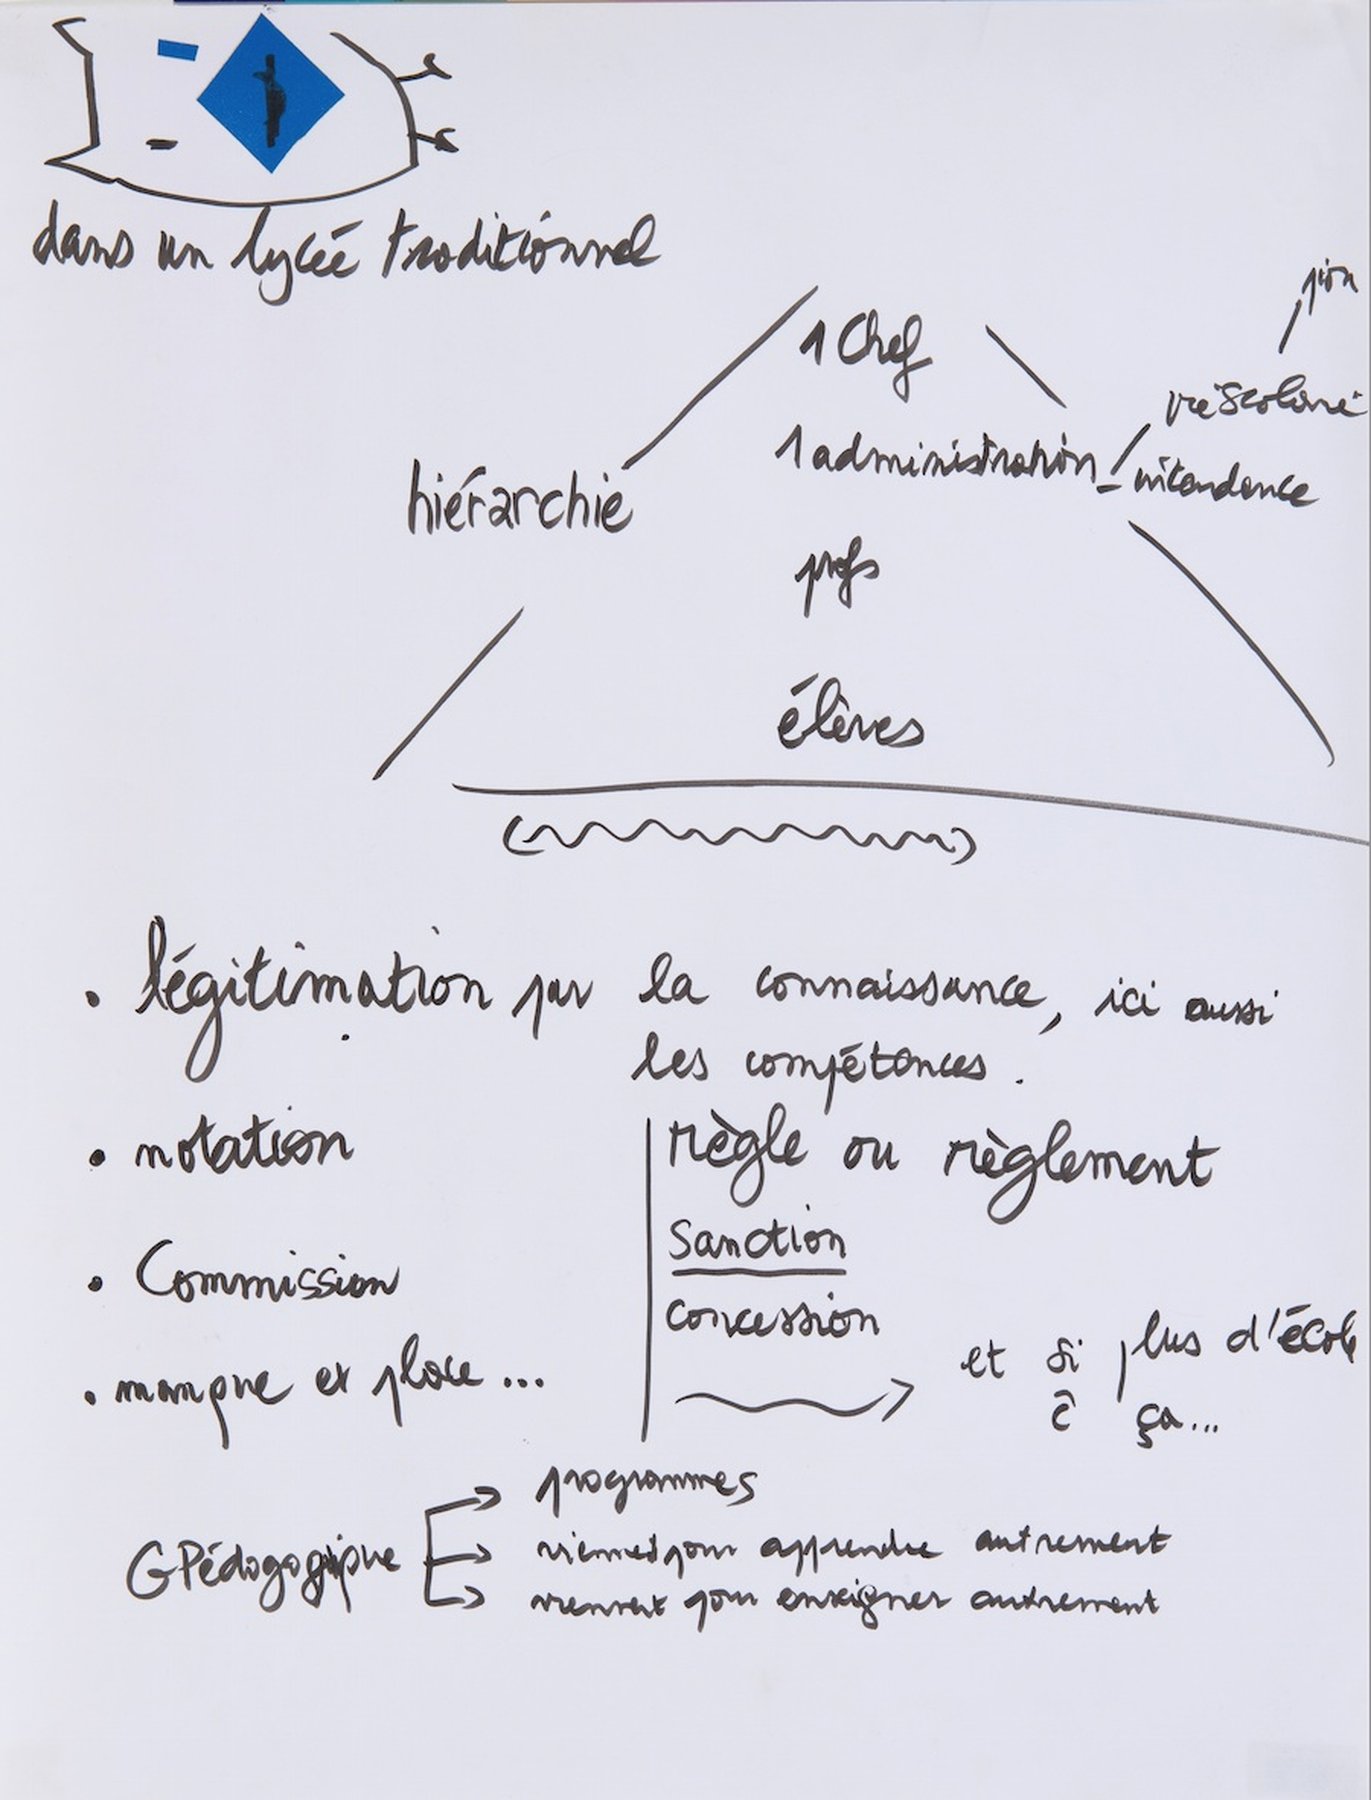 dans un lycée traditionnel
pion
1 Chef
vie scolaire
1 administration - intendence
hiérarchie
profs
élèves
• légitimation par la connaissance, ici aussi
les compétences.
• notation
règle ou règlement
Sanction
• Commission
concession
et si plus d'écol
• manque et place ...
c ça...
programmes
GPédagogique
viennent pour apprendre autrement
viennent pour enseigner autrement